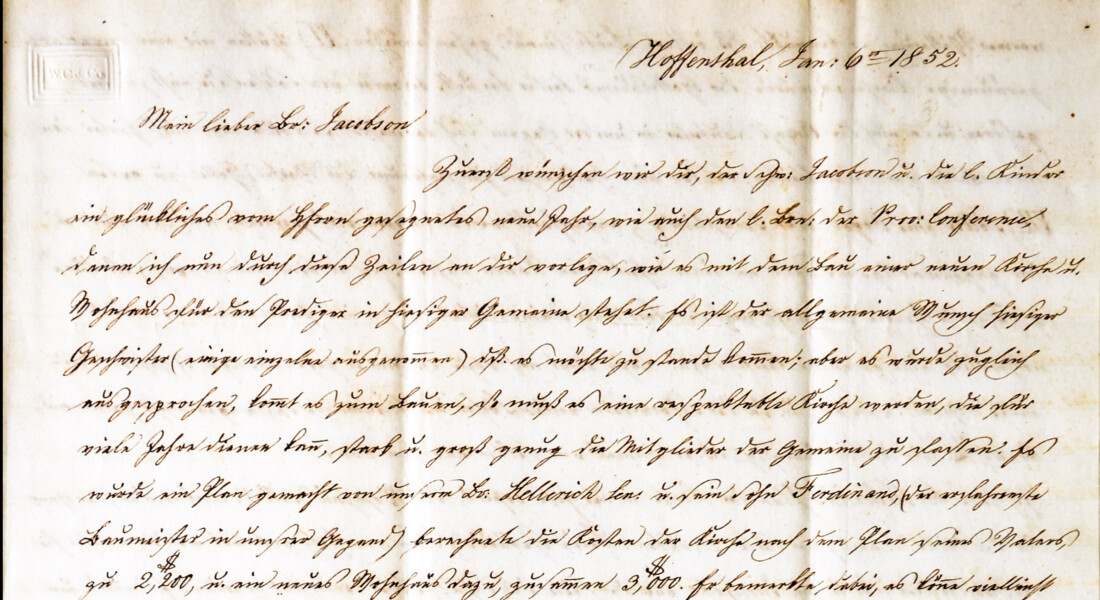 Hoffenthal, Jan: 6n 1852.
Mein lieber Br: Jacobson
Zuerst wünschen wir dir, der Schw: Jacobson u. die l. Kinder
ein glückliches vom Herrn gesegnetes neue Jahr, wie auch den l. Brn: der Prov: Conference,
denen ich nun durch diese Zeilen an dir vorlege, wie es mit dem Bau einer neuen Kirche u.
Wohnhaus für den Prediger in hiesiger Gemeine stehet. Es ist der allgemeine Wunsch hiesiger
Geschwister (einige einzelne ausgenommen) daß es möchte zu stande kommen; aber es wurde zugleich
ausgesprochen, kommt es zum Bauen, so muß es eine respecktable Kirche werden, die für
viele Jahre dienen kan̅, stark u. groß genug die Mitglieder der Gemeine zu fassen. Es
wurde ein Plan gemacht von unserm Br: Hellerich sen: u. sein Sohn Ferdinand, (der erfahrenste
Baumeister in unsrer Gegend) berechnete die Kosten der Kirche nach dem Plan seines Vaters,
zu $2,200, u. ein neues Wohnhaus dazu, zusammen $3,000. Er bemerkte dabei, es kön̅e vielleicht